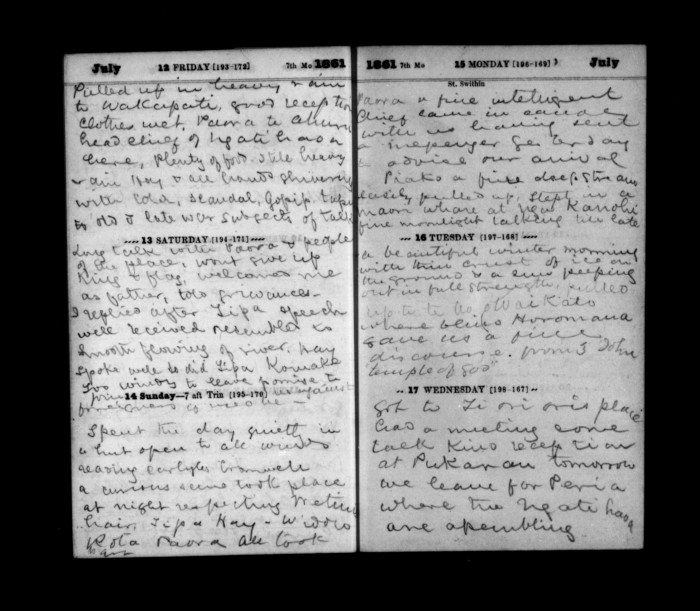 July 12 FRIDAY [193-172] 7th Mo 1861
Pulled up in heavy rain
to Wakapati, good reception
Clothes wet, Paora te
head chief of Ngati haoa
here, Plenty of food. Still heavy
rain Hay & all hands shivering
with cold, scandal, Gossip,
old & late war subjects of talk
13 SATURDAY [194-171]
Long talk with Paora & people
of the place, wont give up
King & flag, welcomes me
as father, told grievances
I replied after Tipa speech
well received resembled to
smooth flowing of river, Hay
spoke well so did Tipa
Two to leave promise to
join us against
14 Sunday—7 aft Trin [195-170]
Spent the day quietly in
a hut open to all winds
reading Carlyles Cromwell
a curious scene took place
at night respecting
hair, Tipa Hay - Widow
Rota Paora all took
1861 7th Mo 15 MONDAY [196-169] July
St. Swithin
Paora a fine intelligent
Chief came in canoe
with us having sent
a messenger yesterday
to advise our arrival
Piako a fine deep stream
easily pulled up, Slept in a
maori whare at
fine moonlight talking till late
16 TUESDAY [197-168]
a beautiful winter morning
with thin crust of ice on
the ground & a sun peeping
out in full strength, pulled
up to Waikato
where blind Horomana
gave us a fine
discourse. from 3 John
"temple of God"
17 WEDNESDAY [198-167]
Got to place
had a meeting some
talk Kind reception
at Pukanau tomorrow
we leave for Peria
where the Ngati haoa
are assembling